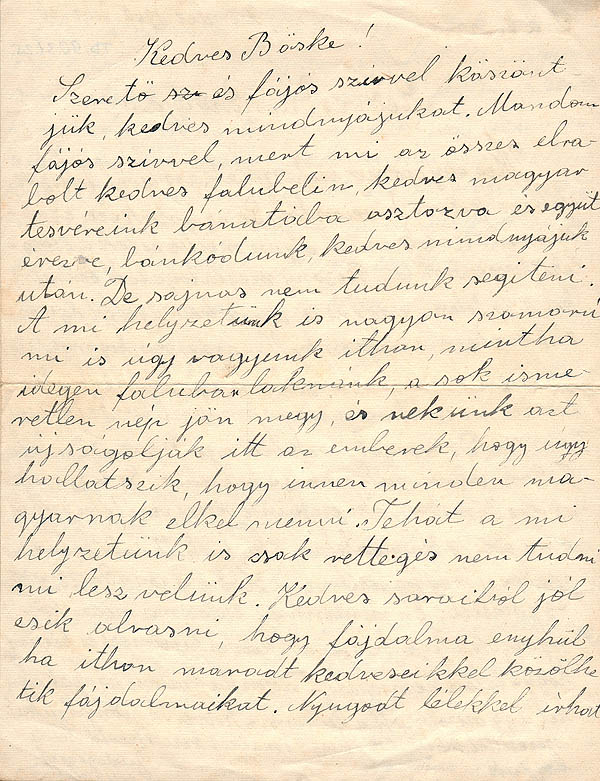 Kedves Böske!
Szerető sz és fájós szívvel köszönt
jük, kedves mindnyájukat. Mondom
fájós szívvel, mert mi az összes elra-
bolt kedves falubelin, kedves magyar
tesvéreink bánatába osztozva és együt
érezve, bánkódunk, kedves mindnyájuk
után. De sajnos nem tudunk segiteni.
A mi helyzetünk is nagyon szomorú
mi is úgy vagyunk ithon, mintha
idegen faluban laknánk, a sok isme-
retlen nép jön megy, és nekünk azt
újságolják itt az emberek, hogy úgy
hallatszik, hogy innen minden ma-
gyarnak elkel menni. Tehát a mi
helyzetünk is csak rettegés nem tudni
mi lesz velünk. Kedves soraiból jól
esik olvasni, hogy fájdalma enyhül
ha ithon maradt kedveseikkel közölhe
tik fájdalmaikat. Nyugodt lélekkel írhat